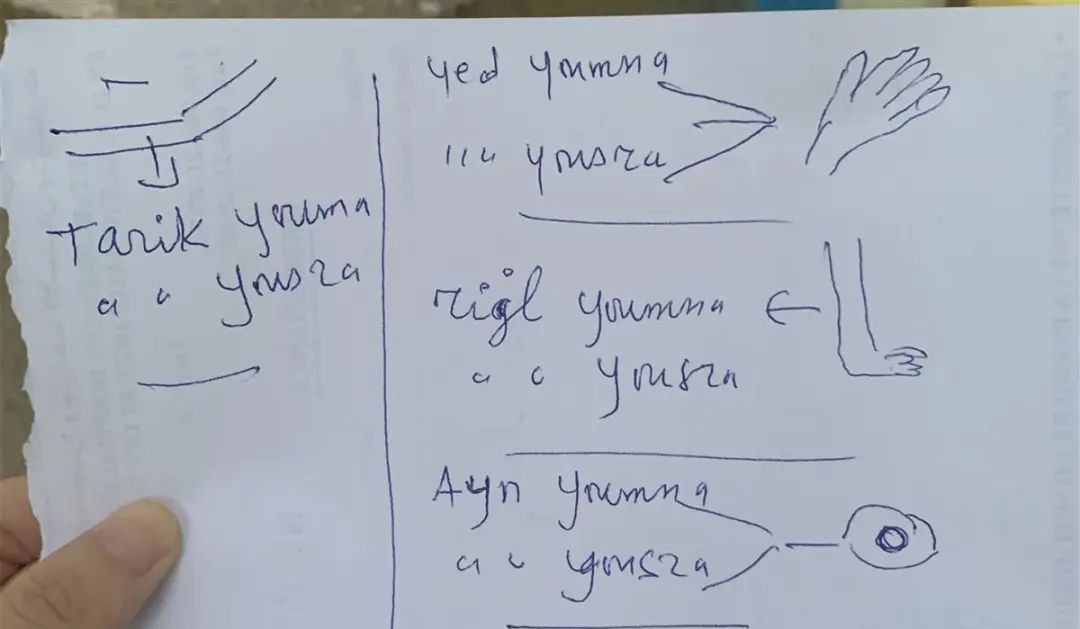 Tarik youma
" " yousra
yed youmna
" " yousra
rigl youmna
" " yousra
Ayn youmna
" " yousra